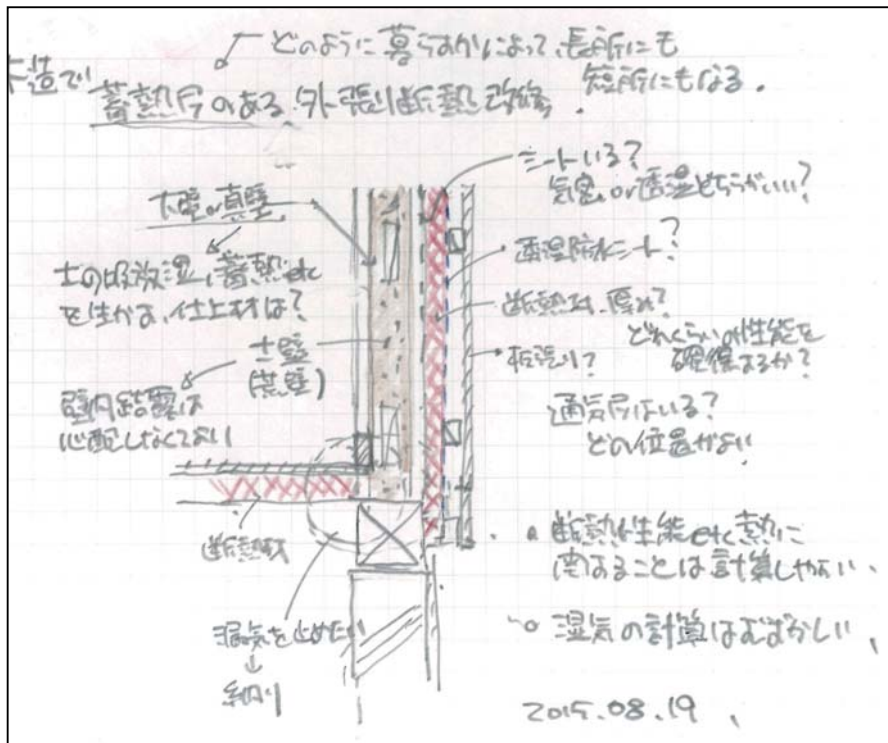 どのように暮らすかによって、長所にも
短所にもなる.
木造で
蓄熱層のある外張り断熱
大壁or真壁
土の吸放湿、蓄熱etc
を生かす、仕上材は?
土壁
(荒壁)
壁内結露は
心配しなくてよい
断熱材
湿気を止めたい
シートいる?
気密or透湿どちらがいい?
透湿防水シート?
断熱材、厚み?
どれくらいの性能を
確保するか?
板張り?
通気層はいる?
どの位置がよい
断熱性能etc熱に
関することは計算しやすい、
湿気の計算はむずかしい、
2015.08.19